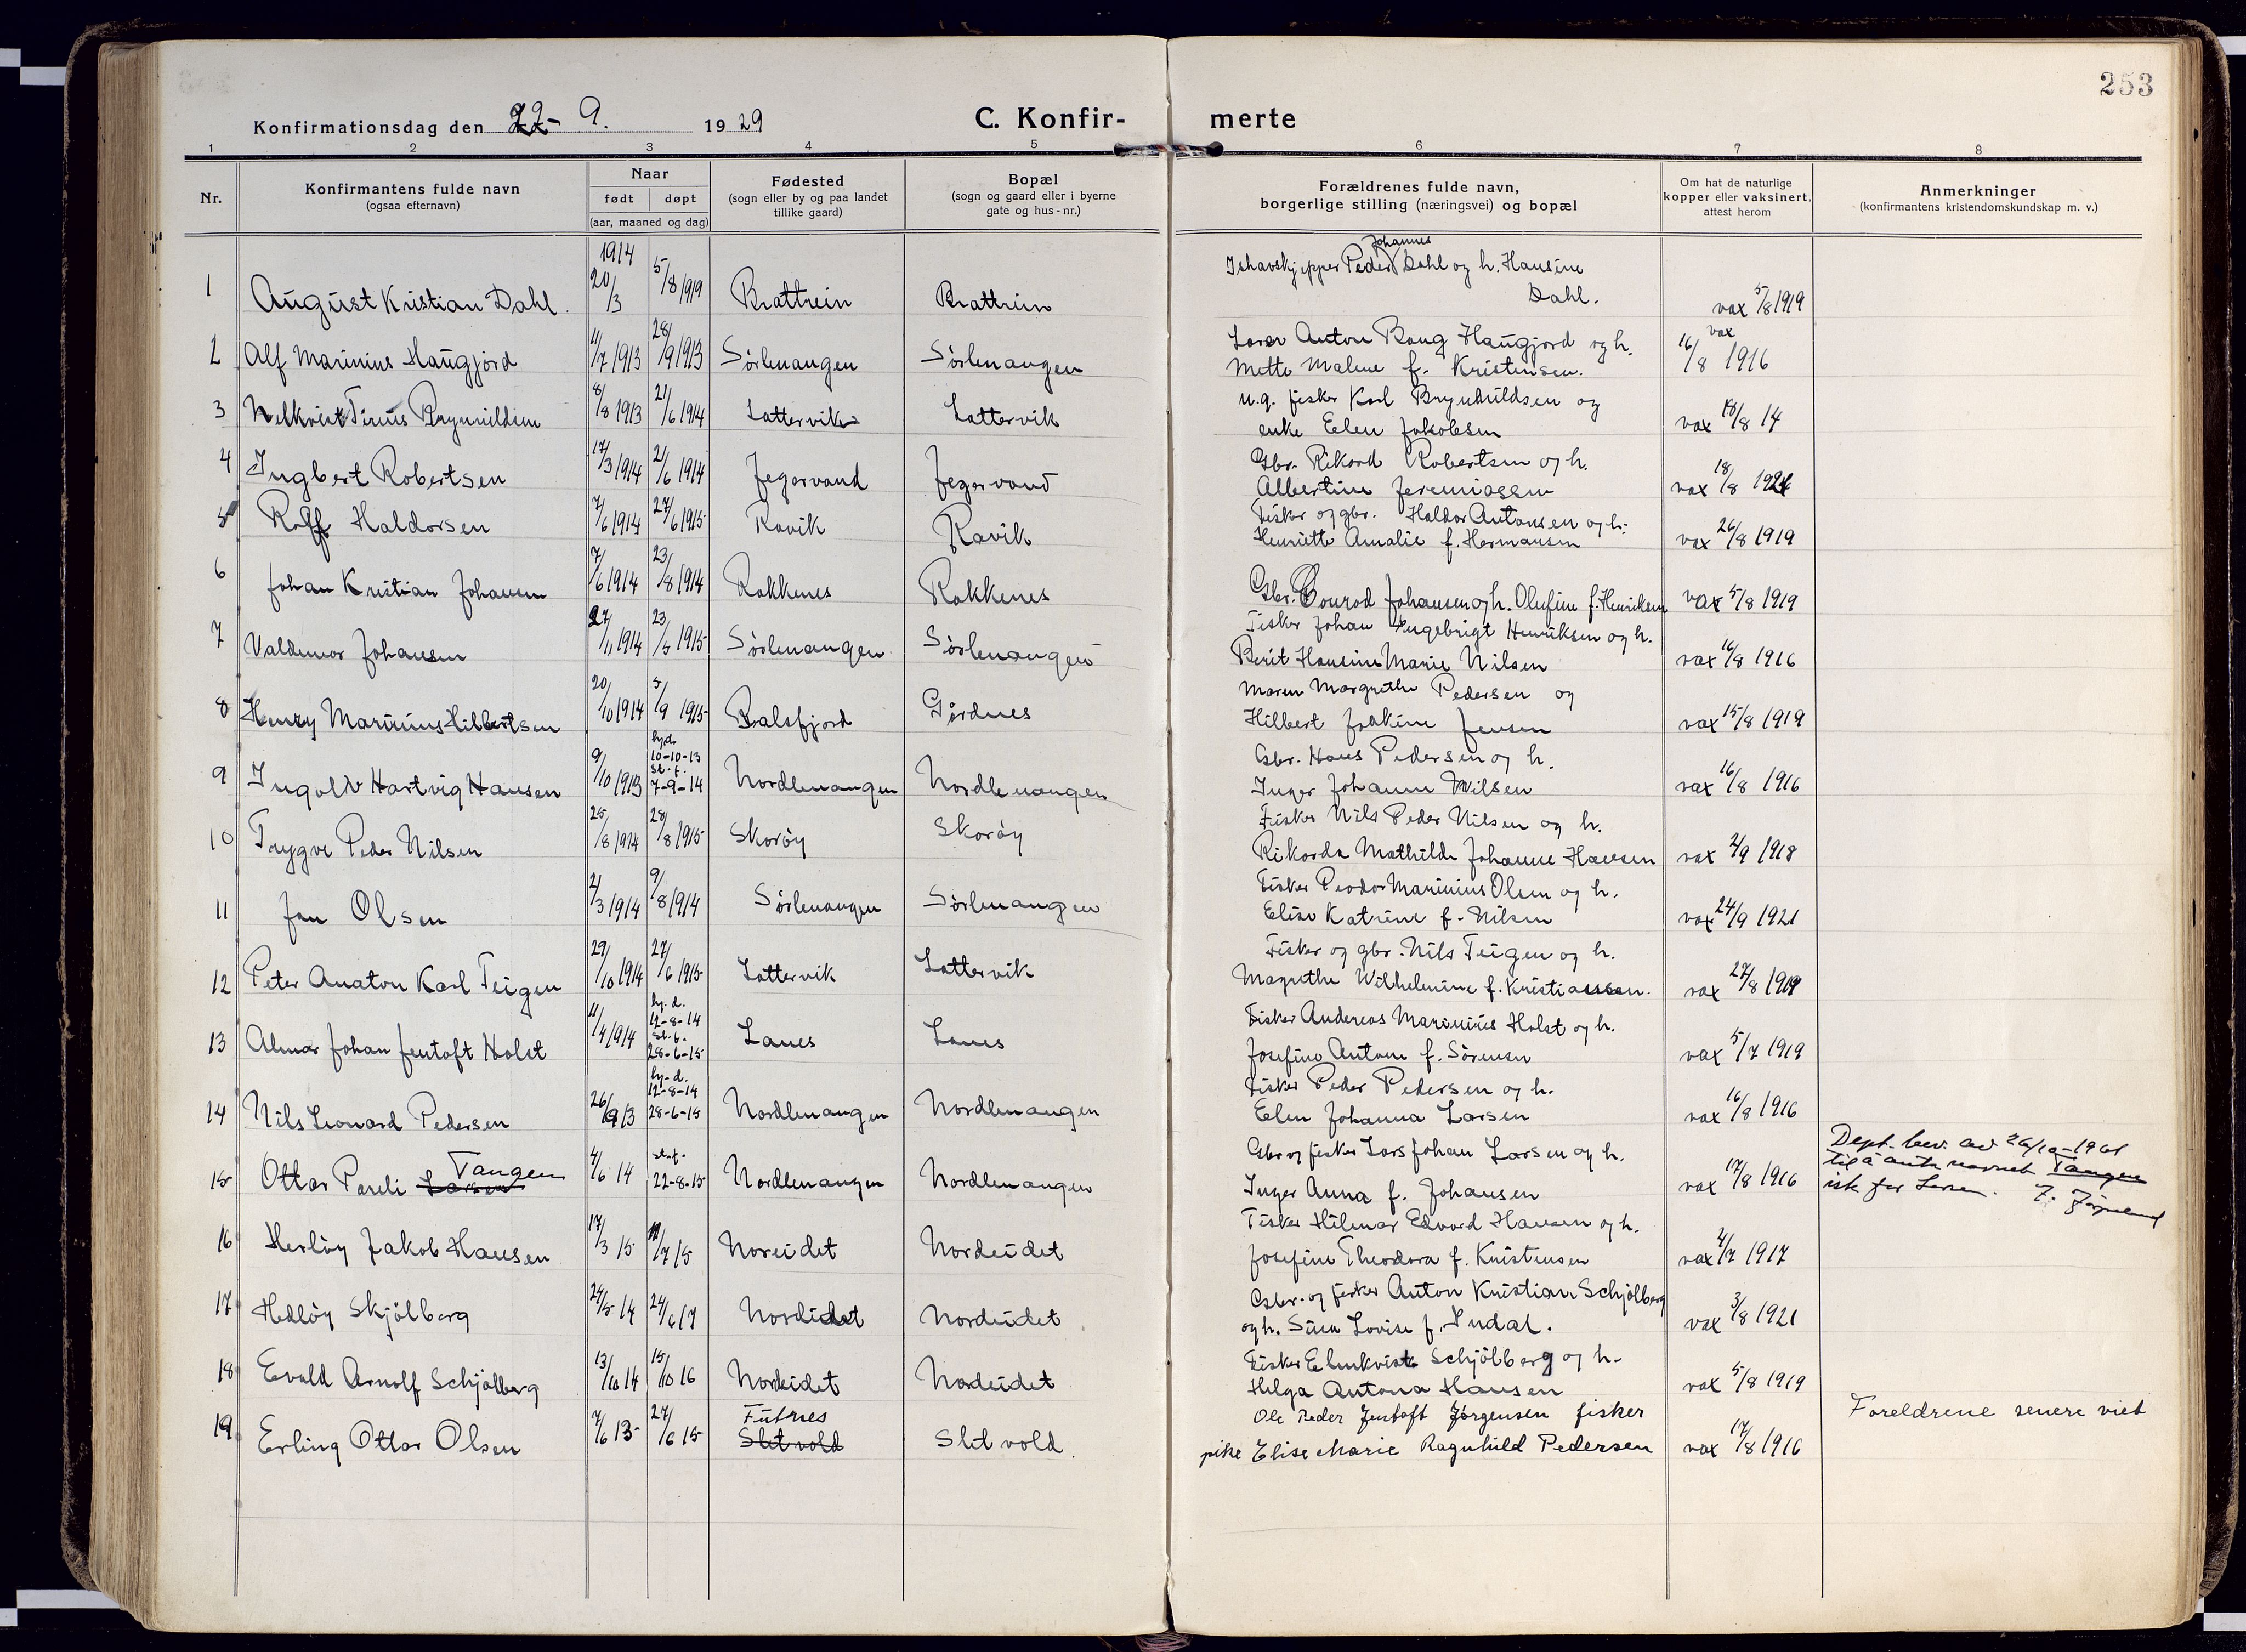 253
Konfirmationsdag den 22-9. 1929
C. Konfirmerte
1 2 3 4 5 6 7 8
Nr.
Konfirmantens fulde navn
(ogsaa efternavn)
Naar
født døpt
(aar, maaned og dag)
Fødested
(sogn eller by og paa landet
tillike gaard)
Bopæl
(sogn og gaard eller i byerne
gate og hus-nr.)
Forældrenes fulde navn,
borgerlige stilling (næringsvei) og bopæl
Om hat de naturlige
kopper eller vaksinert,
attest herom
Anmerkninger
(konfirmantens kristendomskundskap m. v.)
1 August Kristian Dahl. 1914 20/3 5/8 1919 Brattrein Brattrein
Ishavskipper Peder Johannes Dahl og h. Hansine
Dahl. vax 5/8 1919
2 Alf Marinius Haugjord 11/7 1913 28/9 1913 Sörlenangen Sörlenangen
Anton Bang Haugjord og h.
Mette Malene f. Kristensen. vax 16/8 1916
3 Brynhildsen 8/8 1913 21/6 1914 Lattervik Lattervik
u.g. fisker Karl Brynhildsen og
enke Elen Jakobsen vax 18/8 14
4 Ingbert Robertsen 17/3 1914 21/6 1914 Jegervand Jegervand
Gbr. Rikard Robertsen og h.
Albertine Jeremiassen vax 18/8 1921
5 Rolf Haldorsen 7/6 1914 27/6 1915 Ravik Ravik
Fisker og gbr. Haldor Antonsen og h.
Henriette Amalie f. Hermansen vax 26/8 1919
6 Johan Kristian Johansen 7/6 1914 23/8 1914 Rakkenes Rakkenes
Gbr. Conrad Johansen og h. Olufine f. Henriksen vax 5/8 1919
7 Valdemar Johansen 27/11 1914 23/5 1915 Sörlenangen Sörlenangen
Fisker Johan Ingebrigt Henriksen og h.
Berit Hansine Marie Nilsen vax 16/8 1916
8 Henry Marinius Hilbertsen 20/10 1914 5/9 1915 Balsfjord Gjördnes
Maren Margrethe Pedersen og
Hilbert Joakim Jensen vax 15/8 1919
9 Ingolv Hartvig Hansen 9/10 1913 hj.d. 10-10-13 st.f. 7-9-14 Nordlenangen Nordlenangen
Gbr. Hans Pedersen og h.
Inger Johanne Nilsen vax 16/8 1916
10 Trygve Peder Nilsen 25/8 1914 28/8 1915 Skoröy Skoröy
Fisker Nils Peder Nilsen og h.
Rikarda Mathilde Johanne Hansen vax 2/9 1918
11 Jan Olsen 21/3 1914 9/8 1914 Sörlenangen Sörlenangen
Fisker Peodor Marinius Olsen og h.
Elise Katrine f. Nilsen vax 24/9 1921
12 Peter Anaton Karl Teigen 29/10 1914 27/6 1915 Lattervik Lattervik
Fisker og gbr. Nils Teigen og h.
Magrethe Wilhelmine f. Kristiansen. vax 27/8 1919
13 Almar Johan Jentoft Holst 11/4 1914 hj.d. 12-8-14 st.f. 28-6-15 Lanes Lanes
Fisker Andreas Marinius Holst og h.
Josefine Antone f. Sörensen vax 5/7 1919
14 Nils Leonard Pedersen 26/9 13 hj.d. 12-8-14 28-6-15 Nordlenangen Nordlenangen
Fisker Peder Pedersen og h.
Elen Johanna Larsen vax 16/8 1916
15 Ottar Pareli Larsen Tangen 4/6 14 st.f. 22-8-15 Nordlenangen Nordlenangen
Gbr og fisker Lars Johan Larsen og h.
Inger Anna f. Johansen vax 17/8 1916
Dept. bev. av 26/10-1961
til å anta navnet Tangen
ist. for Larsen.
16 Herlöy Jakob Hansen 17/3 15 11/7 15 Noreidet Nordeidet
Fisker Hilmar Edvard Hansen og h.
Josefine Theodora f. Kristensen vax 4/7 1917
17 Hedlöy Skjölberg 24/5 14 24/6 17 Nordeidet Nordeidet
Gbr. og fisker Anton Kristian Schjölberg
og h. Sina Lovise f. Indal. vax 3/8 1921
18 Evald Arnolf Schjölberg 13/10 14 15/10 16 Nordeidet Nordeidet
Fisker Elmkvist Schjölberg og h.
Helga Antona Hansen vax 5/8 1919
19 Erling Ottar Olsen 7/6 13 27/6 15 Futnes Sletvold Sletvold.
Ole Peder Jentoft Jörgensen fisker
pike Elise Marie Ragnhild Pedersen vax 17/8 1916
Foreldrene senere viet